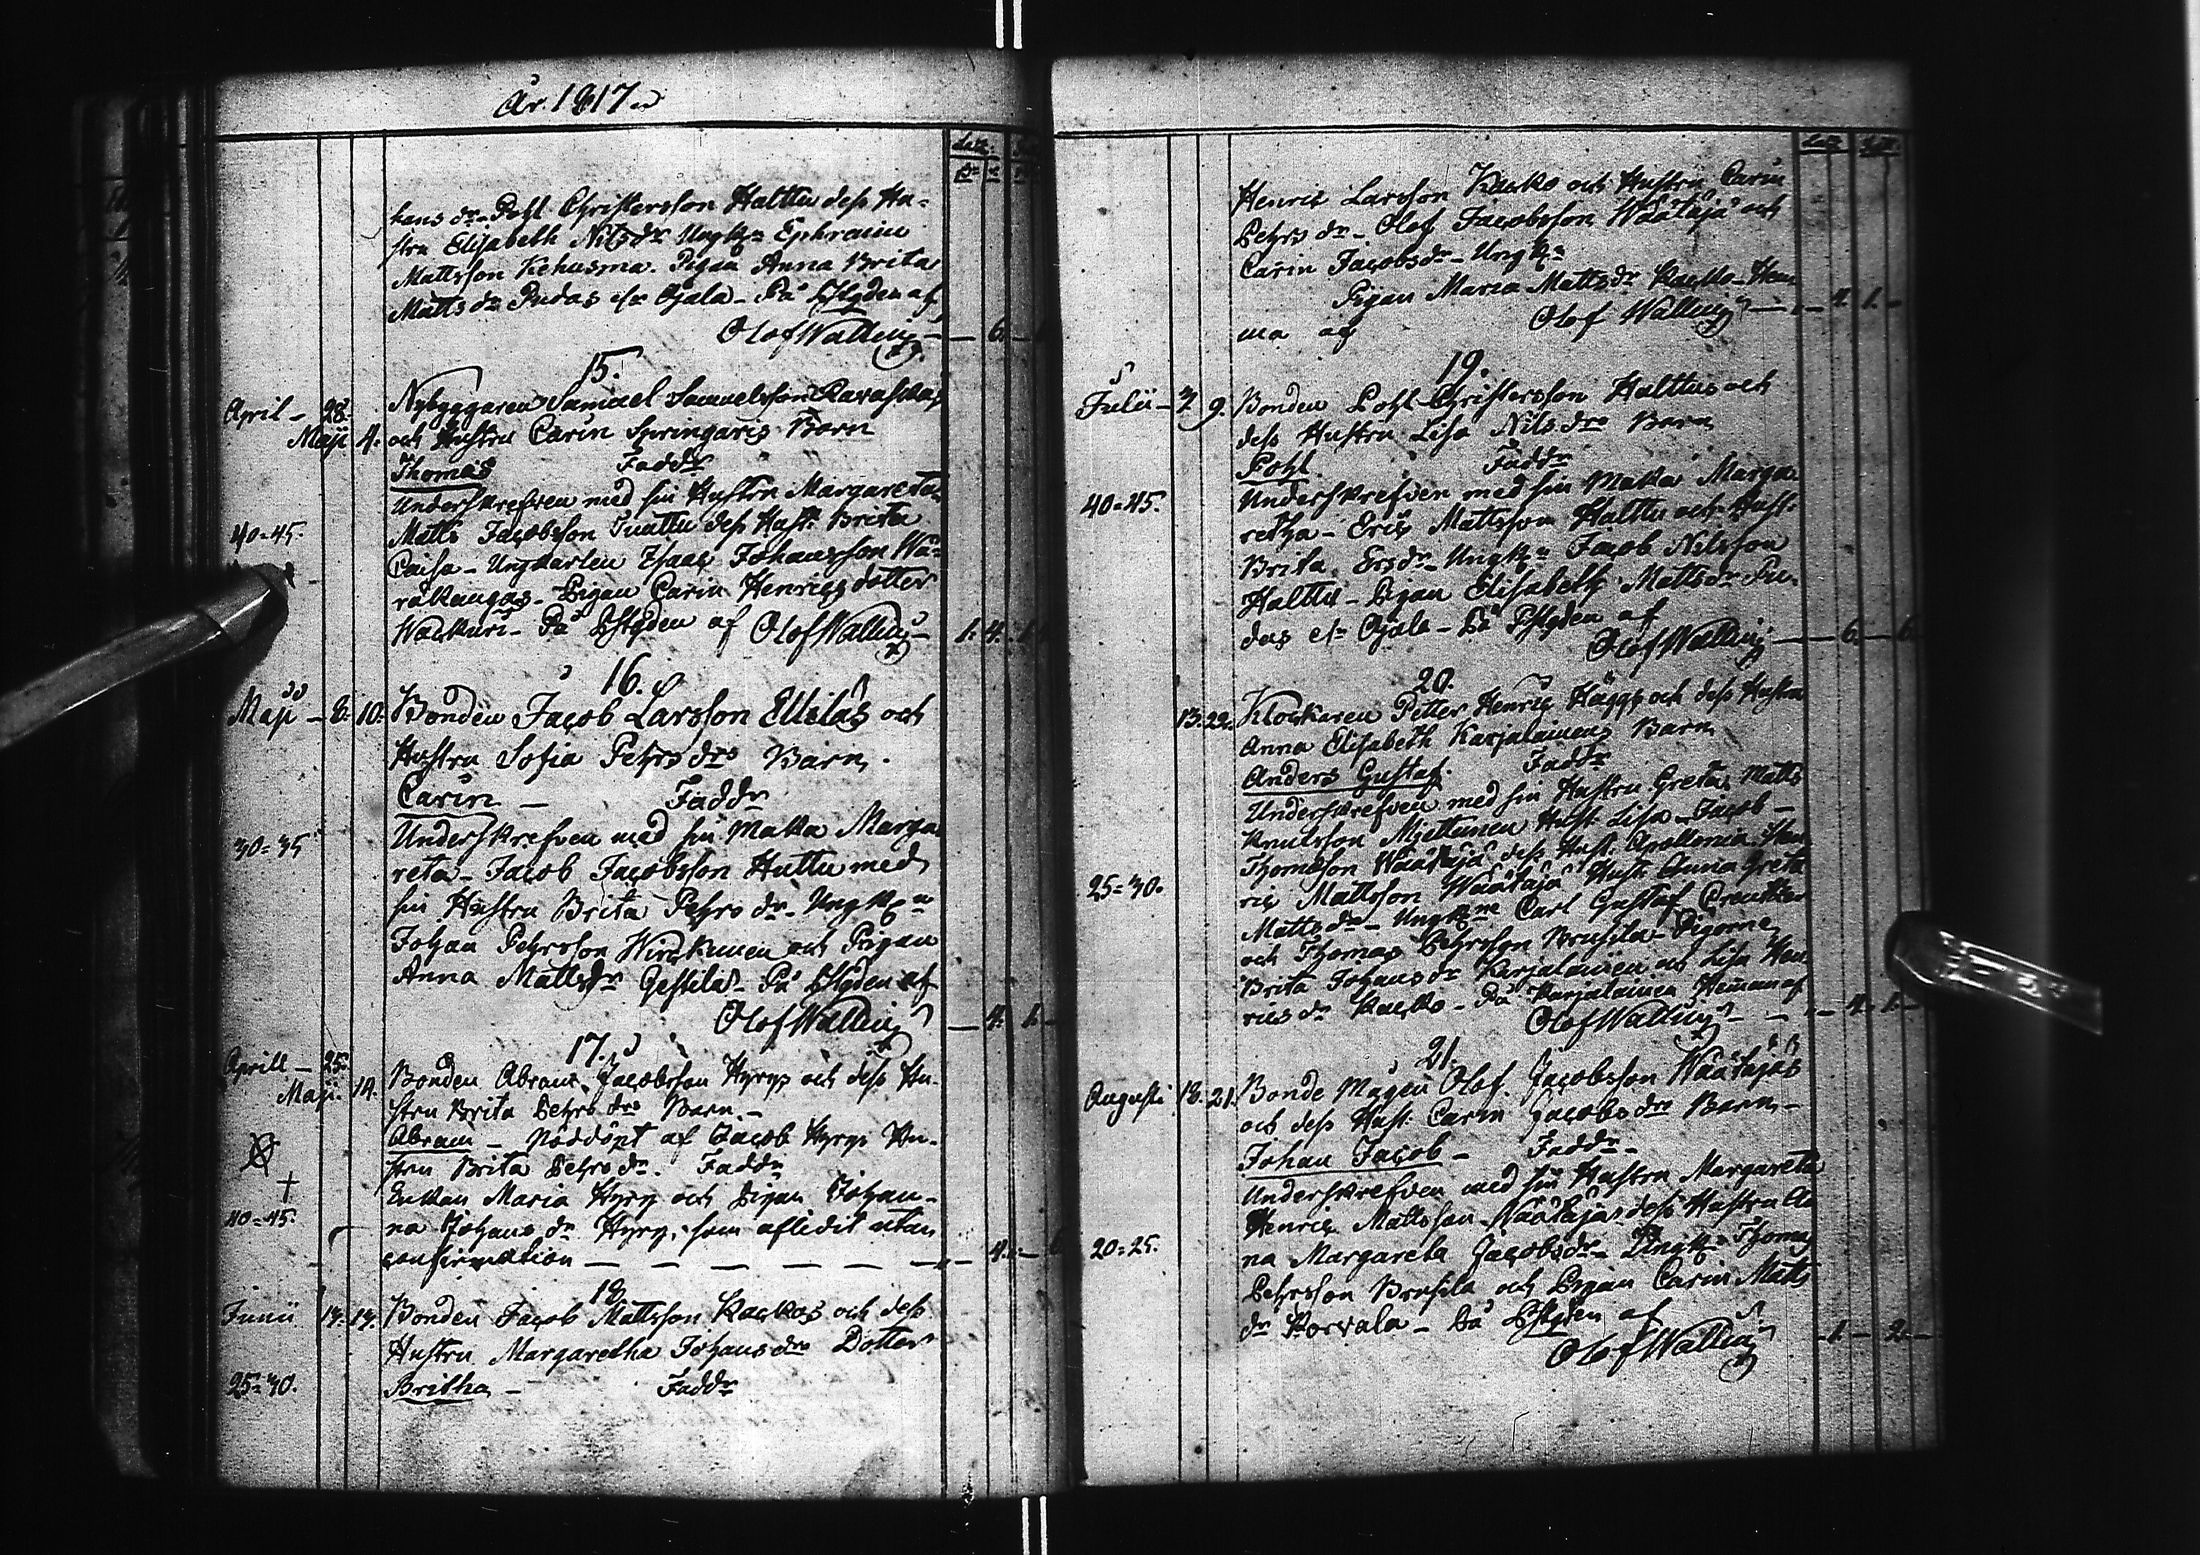 År 1817
hans dr. Pohl Christersson Halttu dess Hu-
stru Elisabeth Nilsdr Ungk:n Ephraim
Mattsson Kehusma. Pigan Anna Brita
Mattsdr Pudas Ojala - På af
Olof Walling — 6. —
15.
April - 28. Nybyggaren Samuel Samuelsson
Maji 4. och Hustru Carin Springaris Barn
Thomas Faddr
Underskrefven med sin Hustru Margareta
40=45. Matts Jacobsson dess Hustr Brita
Caisa - Ungkarlen Isaac Johansson Wä-
räkangas - Pigan Carin Henrics dotter
Wackuri - På af Olof Walling - 1. 4.
16.
Maji - 8. 10. Bonden Jacob Larsson Ellilás och
Hustru Sofia Pehrs drs Barn.
Carin — Faddr
Underskrefven med sin Maka Marga
30=35 reta - Jacob Jacobsson Huttu med
sin Hustru Brita Pehrs dr - Ungk:n
Johan Pehrsson Wirkkunen och Pigan
Anna Mattsdr - På af
Olof Walling — 4. 1. —
17.
Aprill - 25. Bonden Abram Jacobsson Hyrys och dess Hu-
Maji. 14. stru Brita Pehrs drs Barn. -
Abram - Nöddöpt af Jacob Hyrys Hu-
stru Brita Pehrs dr. Faddr
+ Enkan Maria Hyry och Pigan Johan-
40=45. na Johans dr Hyry, som aflidit utan
confirmation — — — — — — — 4. —
18
Junii 13. 13. Bonden Jacob Mattsson Kackos och dess
Hustru Margaretha Johansdrs Dotter
25=30. Britha - Faddr
Henric Larsson Kacko och Hustru Carin
Pehrs dr - Olof Jacobsson Wäätäjä och
Carin Jacobsdr - Ungk:n
Pigan Maria Mattsdr Kackko - Hem
ma af Olof Walling — 4. 1. -
19.
Julii - 7. 9. Bonden Pohl Christersson Halttus och
dess Hustru Lisa Nils drs Barn
Pohl Faddr
40=45. Underskrefven med sin Maka Marga
retha - Eric Mattsson Halttu och Hust:
Brita Ersdr - Ungk:n Jacob Nilsson
Halttu - Pigan Elisabeth Mattsdr Pu-
das Ojala - På af
Olof Walling — 6. —
20.
13. 22. Klockaren Petter Henric Häggs och dess Hustru
Anna Elisabeth Karjalainens Barn
Anders Gustaf. Faddr
Underskrefven med sin Hustru Greta, Matts
Knutsson Miettunen Hust. Lisa - Jacob -
Thomasson Wäätäjä dess Hust. Apollonia - Hen
25=30. ric Mattsson Wäätäjä Hust. Anna Greta
Mattsdr - Ungk:ne Carl Gustaf
och Thomas Pehrsson Brusila - Pigorne
Brita Johansdr Karjalainen och Lisa Hen
rics dr Kackko - På Karjalainen Hemman af
Olof Walling - - 4. 1. -
21.
Augusti 18. 21. Bonde Mågen Olof Jacobsson Wäätäjäs
och dess Hust. Carin Jacobs drs Barn -
Johan Jacob - Faddr -
Underskrefven med sin Hustru Margareta
Henric Mattsson Wäätäjä dess Hustru An
20=25. na Margareta Jacobsdr - Ungk:n Thomas
Pehrsson Brusila och Pigan Carin Matts
dr Korvala - På af
Olof Walling - 1. — 2. —